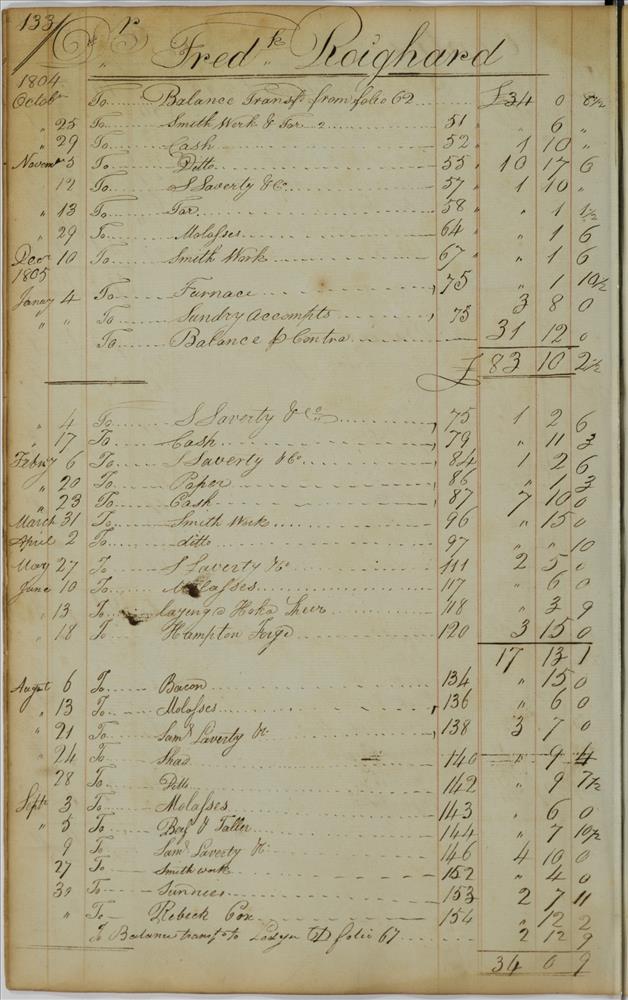 133
Dr Fredk Roighard
1804
Octobr To Balance Transfd from folio 62 £34 0 8 1/2
" 25 To Smith Work & Tar 51 " 6 "
" 29 To Cash 52 " 1 10 "
Novemr 5 To Ditto 55 " 10 17 6
12 To S Laverty & Co 57 " 1 10 "
" 13 To Tar 58 " " 1 1 1/2
" 29 To Molasses 64 " " 1 6
Decr 10 To Smith Work 67 " " 1 6
1805
Janay 4 To Furnace 75 " 1 10 1/2
" " To Sundry Accompts 75 3 8 0
To Balance p Contra 31 12 0
£ 83 10 2 1/2
" 4 To S Laverty & Co 75 1 2 6
" 17 To Cash 79 " 11 3
Febuy 6 To S Laverty & Co 84 1 2 6
" 20 To Paper 86 " 1 3
" 23 To Cash 87 7 10 0
March 31 To Smith Work 96 " 15 0
April 2 To ditto 97 " " 10
May 27 To S Laverty &c 111 2 5 0
June 10 To Molasses 117 " 6 0
" 13 To laying a 118 " 3 9
" 18 To Hampton Forge 120 3 15 0
17 13 1
August 6 To Bacon 134 " 15 0
" 13 To Molasses 136 " 6 0
" 21 To Saml Laverty &c 138 3 7 0
" 24 To Shad 140 " 9 4
28 To Ditto 142 " 9 7 1/2
Septr 3 To Molasses 143 " 6 0
" 5 To 144 " 7 10 1/2
9 To Saml Laverty &c 146 4 10 0
27 To Smith work 152 " 4 0
30 To Sundries 153 2 7 11
" To Rebeck Cox 154 " 12 2
To Balance transfd to Ledger folio 67 2 12 9
34 0 9